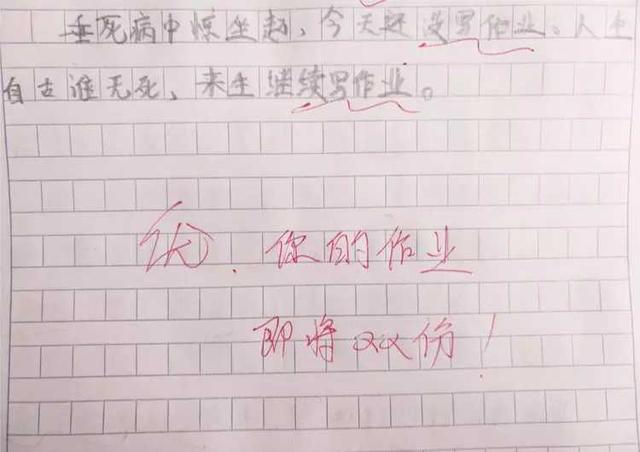 垂死病中惊坐起、今天还没写作业。人生
自古谁无死、来生继续写作业。
优. 你的作业
即将双份!